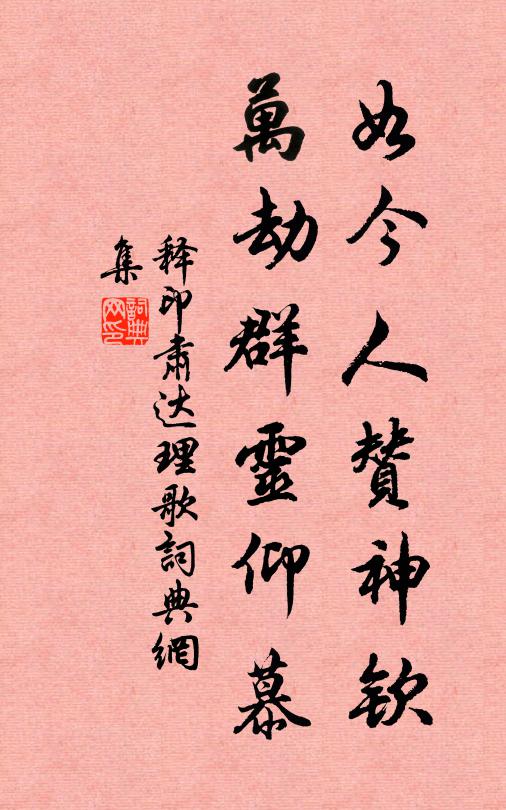 如今人贊神欽
萬劫群靈仰慕
释印肃达理歌詞典網
集
詞典
网印